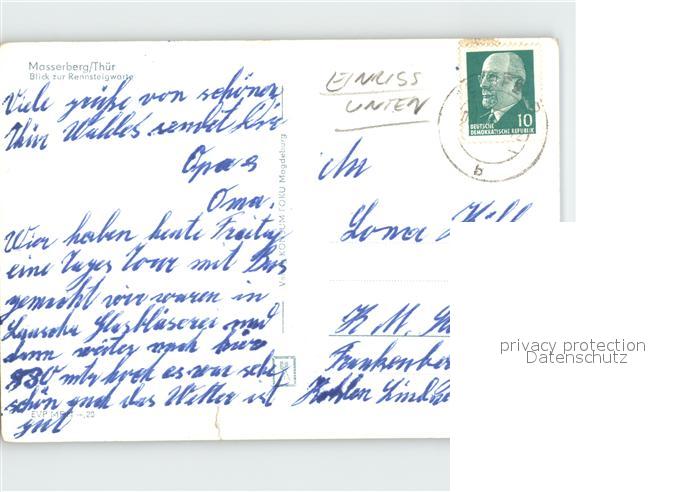 Masserberg/Thür
Blick zur Rennsteigwarte
Viele grüße von schönen
Thür Waldes sendet dir
Opa u
Oma.
Wir haben heute Freitag
eine Tages Tour mit Bus
gemacht wir waren in
Lauscha Glasbläserei und
dann weiter nach hier
880 mtr hoch es war sehr
schön und das Wetter ist
gut
EVP MDN -,20
KONSUM FOKU Magdeburg
EINRISS
UNTEN
10
DEUTSCHE
DEMOKRATISCHE REPUBLIK
b
An
Lona
K. M.
Frankenber
privacy protection
Datenschutz